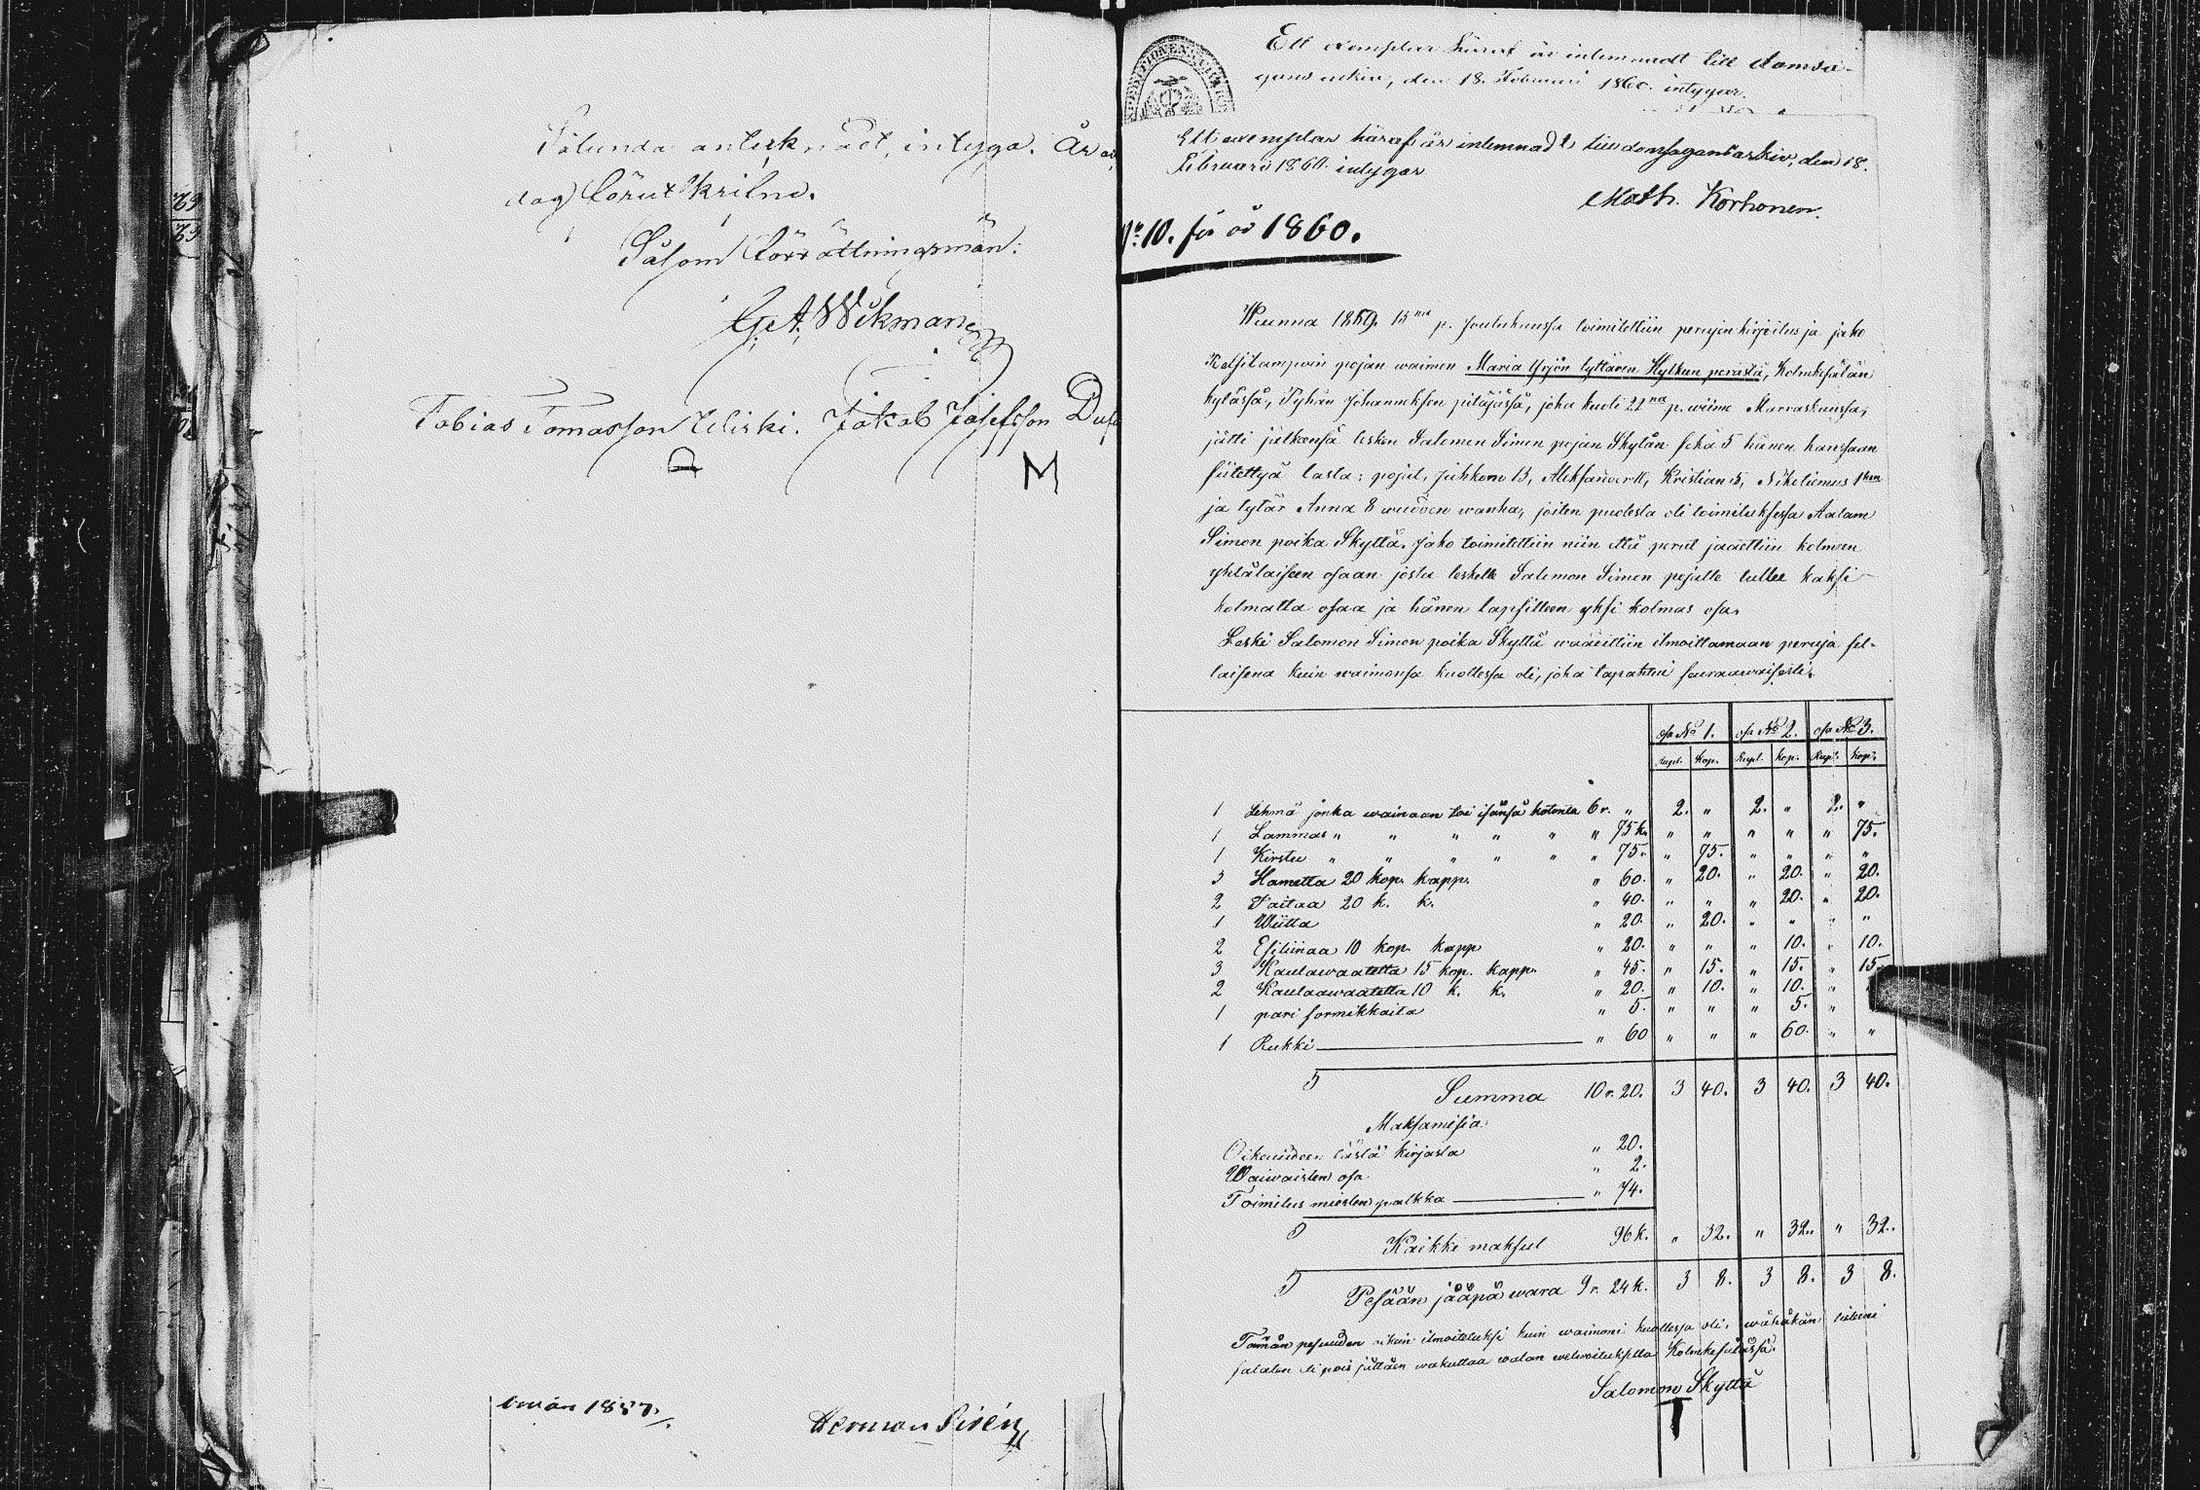 Sålunda antecknadt, intyga. År och
dag förut skrifne.
Såsom förrättningsmän:
G. A. Wikman
Tobias Tomasson Uliski. Jakob Josefsson Dufva
D
M
1857.
Herman Sirén
Ett exemplar häraf är inlemnadt till domsa-
gans arkiv, den 18. Februari 1860. intygar
Ett exemplar häraf är inlemnadt till domsagans arkiv, den 18.
Februari 1860. intygar
Math. Korhonen.
No: 10. för år 1860.
Wuonna 1859. 15 na p. Joulukuussa toimitettiin perujen kirjoitus ja jako
pojan waimon Maria Yrjön tyttären Hytkin perästä, Kolmkesälän
kylässä, Pyhän Johanneksen pitäjässä, joka kuoli 22 na p. wiime Marraskuussa,
jätti jälkeensä lesken Salomon Simon pojan Skytän sekä 5 hänen kanssaan
siitettyä lasta: pojat, Juhkon 13, Aleksander 11, Kristian 5, Nikotiemus 1
ja tytär Anna 8 wuoden wanha, joiten puolesta oli toimituksessa Aatam
Simon poika Skyttä. Jako toimitettiin niin että perut jaaettiin kolmeen
yhtäläiseen osaan josta leskelle Salomon Simon pojalle tullee kaksi
kolmatta osaa ja hänen lapsilleen yksi kolmas osa.
Leski Salomon Simon poika Skyttä waaeittiin ilmoittamaan peruja sel-
laisena kuin waimonsa kuollessa oli, joka tapahtui seuraawaisesti.
osa No 1. osa No 2. osa No 3.
Rupl. Kop. Rupl. Kop. Rupl. Kop.
1 Lehmä jonka wainaan toi isänsä kotonta 6 r. „ 2. „ 2. „ 2. „
1 Lammas „ „ „ „ „ „ 75 k. „ „ „ „ „ 75.
1 Kirstu „ „ „ „ „ „ 75. „ 75. „ „ „ „
3 Hametta 20 kop. kapp. „ 60. „ 20. „ 20. „ 20.
2 Paitaa 20 k. k. „ 40. „ „ „ 20. „ 20.
1 Wiitta „ 20 „ 20. „ „ „ „
2 Esiliinaa 10 kop. kapp „ 20. „ „ „ 10. „ 10.
3 Kaulawaatetta 15 kop. kapp. „ 45. „ 15. „ 15. „ 15
2 Kaulawaatetta 10 k. k. „ 20. „ 10. „ 10. „
1 pari sormikkaita „ 5. „ „ „ 5. „
1 Rukki „ 60 „ „ „ 60. „ „
Summa 10 r. 20. 3 40. 3 40. 3 40.
Maksamisia.
Oikeuteen tästä kirjasta „ 20.
Waiwaisten osa „ 2.
Toimitus miesten palkka „ 74.
Kaikki maksut 96 k. „ 32. „ 32. „ 32.
Pesään jääpä wara 9 r. 24 k. 3 8. 3 8. 3 8.
Tämän pesuuden oikein ilmoitetuksi kuin waimoni kuollessa oli, wähäkän
salaten eli pois jättäen wakuttaa walan welwoituksella Kolmkesälässä.
Salomon Skyttä
T